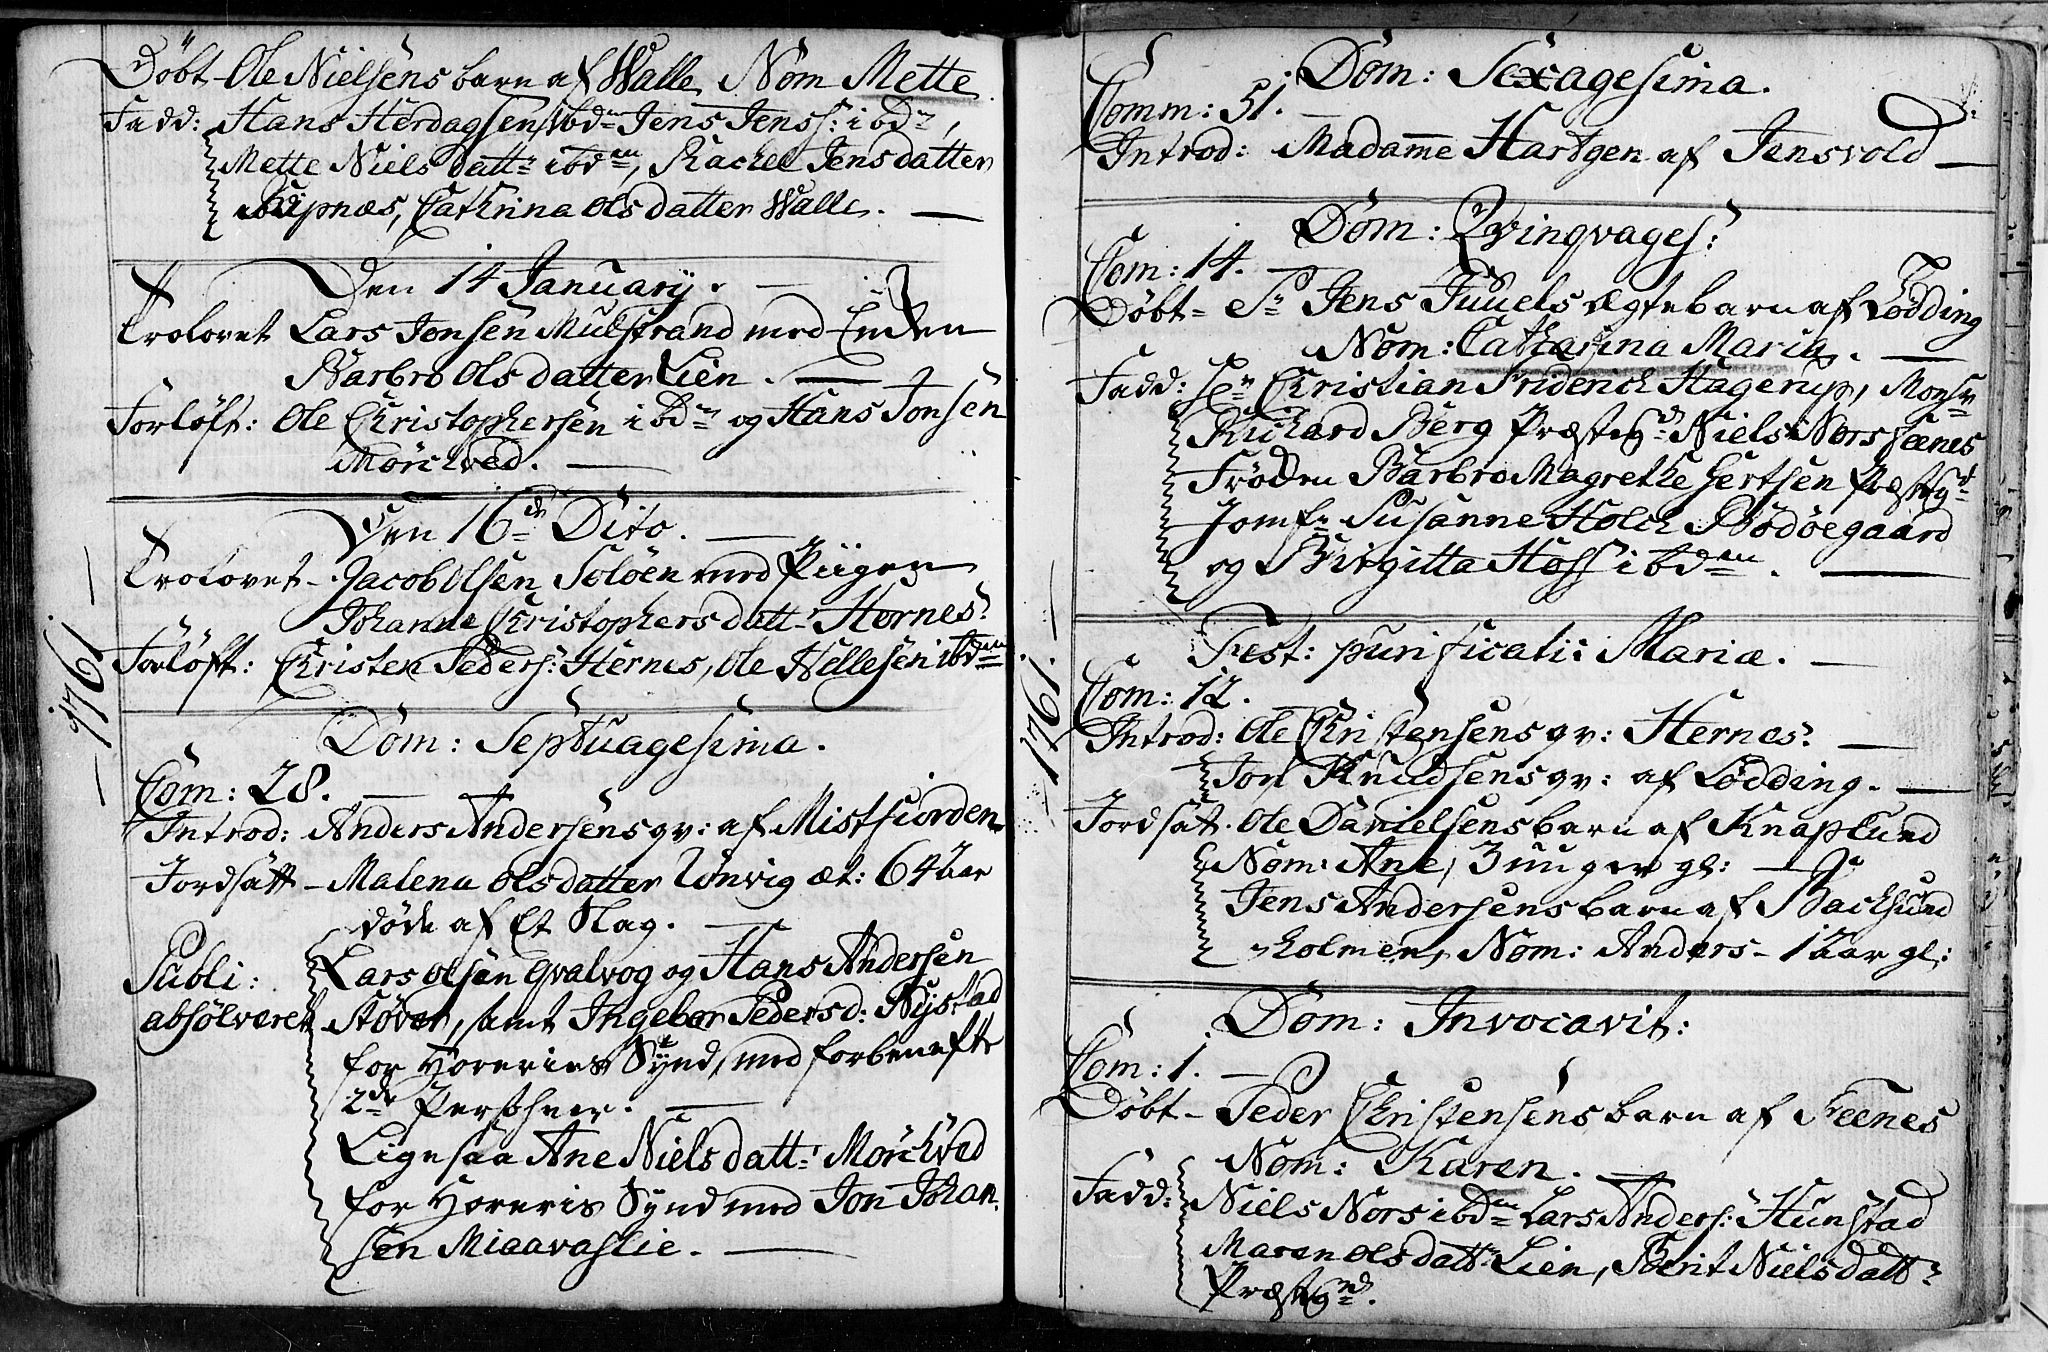 Döbt Ole Nielsens barn af Walle Nom Mette
Fadd: Hans Herdagsen ibd̅ Jens Jenss: ibd̅,
Mette Niels datt: ibdem, Rachel Jensdatter
Kipnæs, Cathrina Olsdatter Walle. —
Den 14 January. —
Trolovet Lars Jonsen Mulstrand med Enken
Barbro Olsdatter Lien. —
Forløft: Ole Christophersen ibd̅ og Hans Jonsen
Mörchved. —
Den 16de Dito. —
Trolovet Jacob Olsen Soløen med Piigen
Johanne Christophersdatt: Hernes.
Forløft: Christen Peders: Hernes, Ole Hellesen ibdem
— 1761. —
Dom: Septuagesima.
Com: 28. —
Introd: Anders Andersens qv: af Mistfiorden
Jordsatt – Malena Olsdatter Lønvig æt: 64 Aar
døde af Et Slag. —
Publi: Lars Olsen Qvalvog og Hans Andersen
absolveret Støver, samt Ingebor Pedersd: Nystad
for Horeries Synd, med forbenefte
2de Persohner. —
Ligesaa Ane Nielsdatt: Mørchved
for Horeris Synd med Jon Johan
sen Miaavaslie. —
Dom: Sexagesima.
Comm: 51. —
Introd: Madame Hartgen af Jensvold —
Dom: Qvinqvages:
Com: 14. —
Döbt – Sr Jens Juuels ægtebarn af Lødding
Nom: Catharina Maria. —
Fadd: Hr Christian Friderich Hagerup, Monsr
Richard Berg Præstegd Niels Nors Feenes
Frøden Barbro Magrethe Gertsen Præstegd
Jomfr Susanne Holch Bodøegaard
og Birgitta Hoss ibdem. —
Fest: purificati: Mariæ. —
Com: 12. —
Introd: Ole Christensens qv: Hernes. —
Jon Knudsens qv: af Lødding. —
— 1761. —
Jordsat. Ole Danielsens barn af Knaplund
Nom: Ane, 3 uuger gl: —
Jens Andersens barn af Backsund
holmen, Nom: Anders – 1 Aar gl:
Dom: Invocavit:
Com: 1. —
Döbt – Peder Christensens barn af Feenes
Nom: Karen. —
Fadd: Niels Nors ibdm Lars Anders: Hunstad
Maren Olsdatt: Lien, Berit Nielsdatt:
Præstegd.